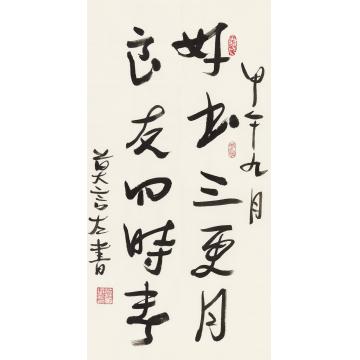 甲午九月
好书三更月
良友四时春
莫言左書